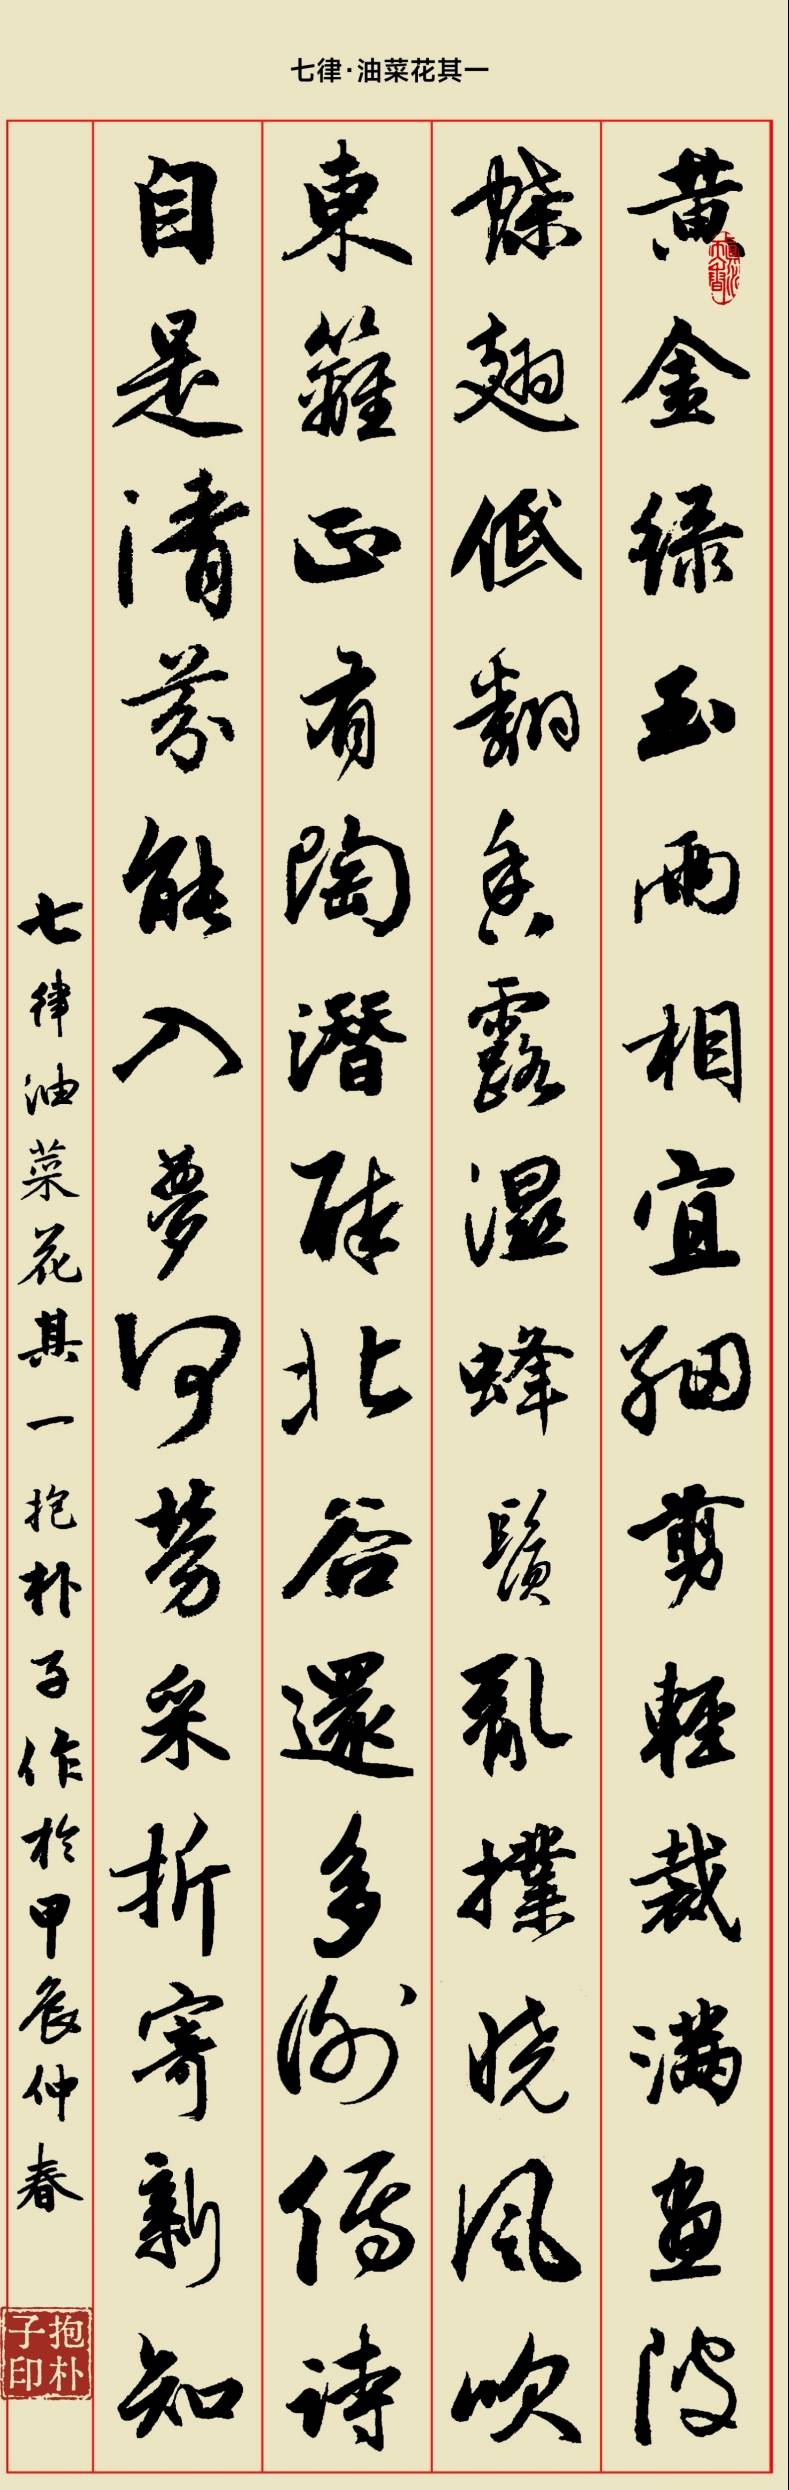 七律·油菜花其一
黄金绿玉兩相宜細剪輕裁满畫陂
蝶翅低翻香露濕蜂鬚亂撲曉風吹
東籬正有陶潛醉北谷還多謝傅詩
自是清芬能入夢何勞采折寄新知
七律油菜花其一抱朴子作於甲辰仲春
抱朴子印